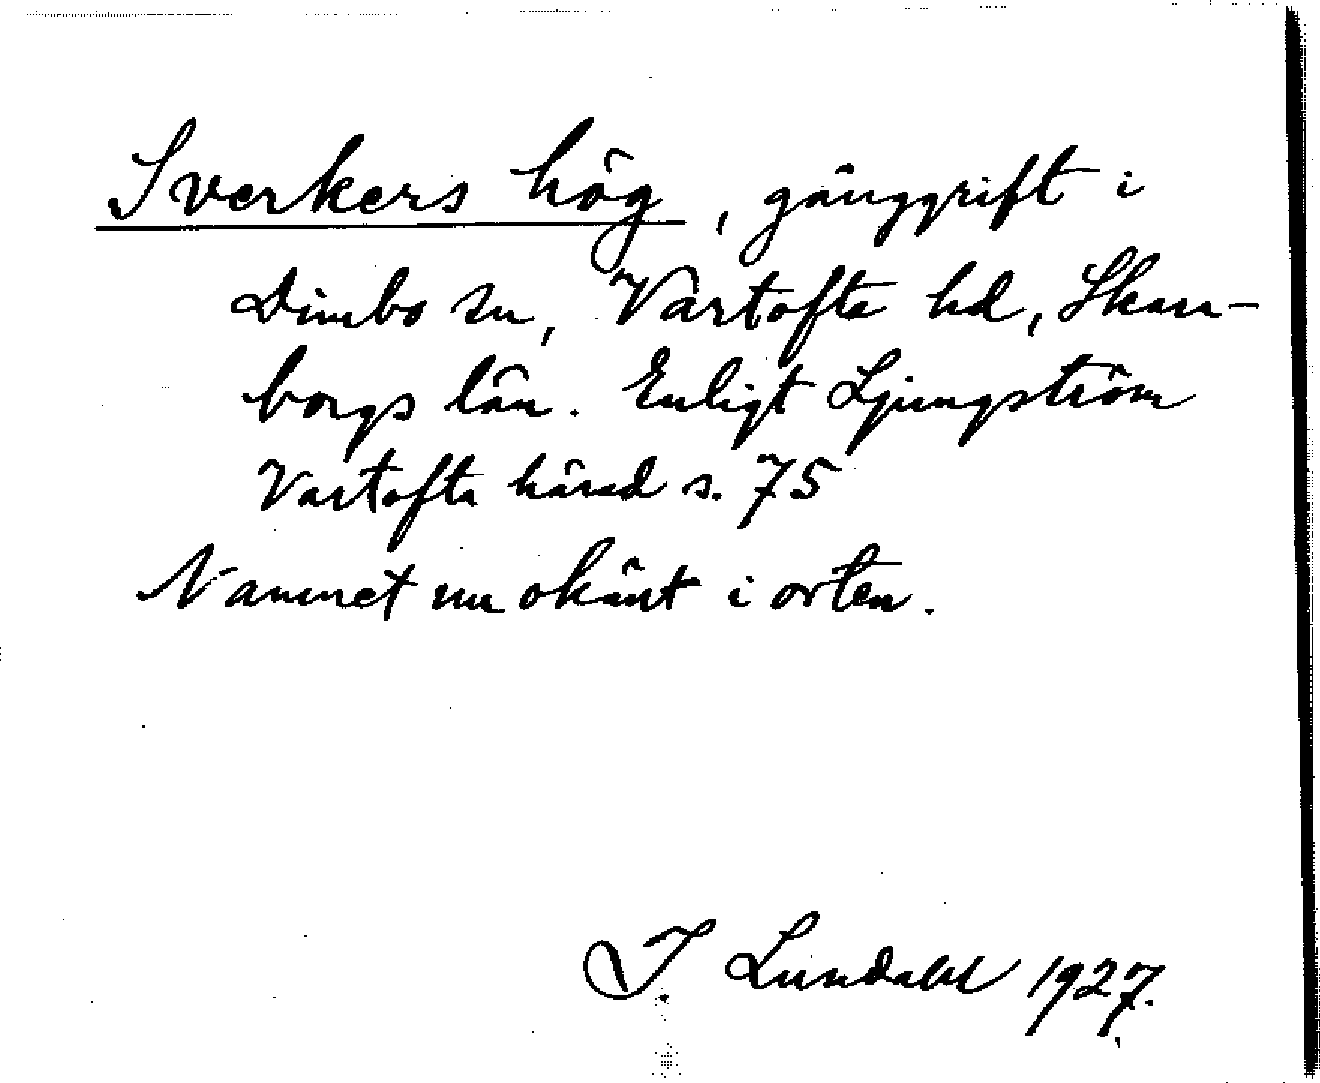 Sverkers hög, gånggrift i
Dimbo sn, Vartofta hd, Skara-
borgs län. Enligt Ljungström
Vartofta härad s. 75
Namnet nu okänt i orten.
I Lundahl 1927.